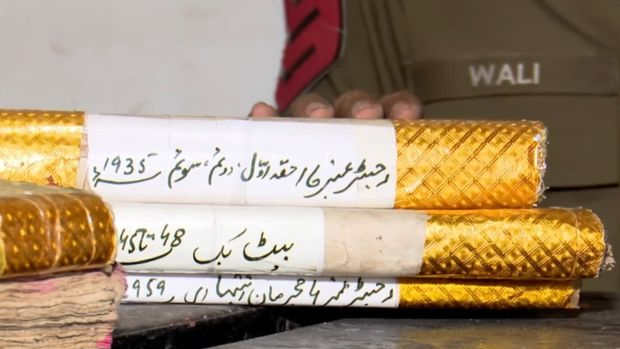 WALI
رجسٹر نمبر حصہ اوّل، دوئم، سوئم 1935ء
بیٹ بک 48 تا 45
رجسٹر نمبر مجرمان اشتہاری 1959